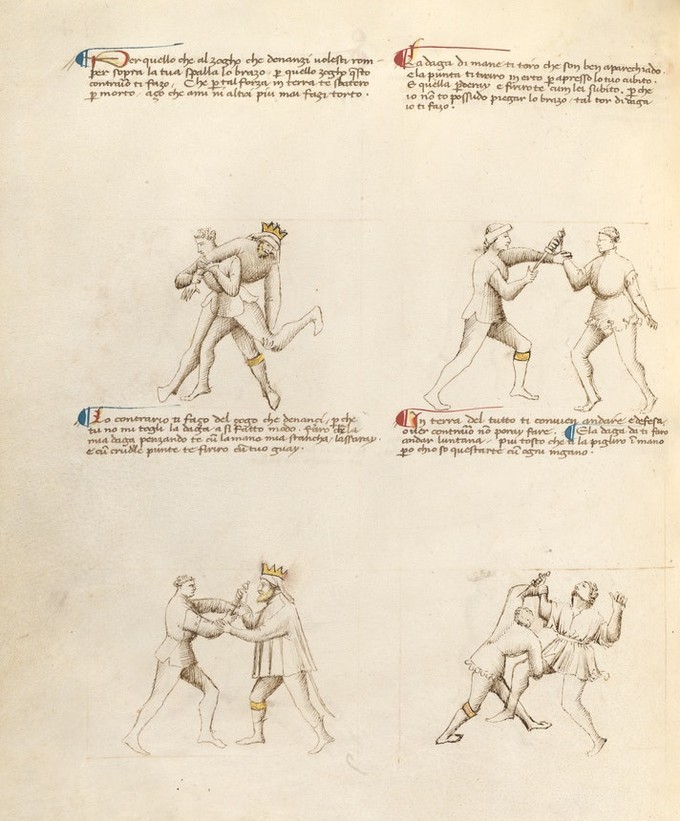 Per quello che al zogho che denanzi volesti rom-
per sopra la tua spalla lo brazo, p quello zogho q̄sto
contrario ti fazo. E che p tal forza in terra te sbatero
p morto. aço che ami ni altri piu mai fazi torto.
La daga di mane ti toro che son ben aparechiado.
e la punta ti tirero in erto p apresso lo tuo cubito.
E quella pderay e firirote cum lei subito. p che
io nō to possudo piegar lo brazo, tal tor di daga
io ti fazo.
Lo contrario ti fazo del zogo che denanci, p che
tu no mi togli la daga, a si fatto modo. faro de la
mia daga penzando te cū la mano mia stancha, lassaray.
e cū crudele punte te firiro cū tuo guay.
In terra del tutto ti convien andare e defesa
over contrario nō poray fare. E la daga da ti faro
andar luntana, piu tosto che ti la pigliro ī mano
po chio so questarte cū ogni ingano.